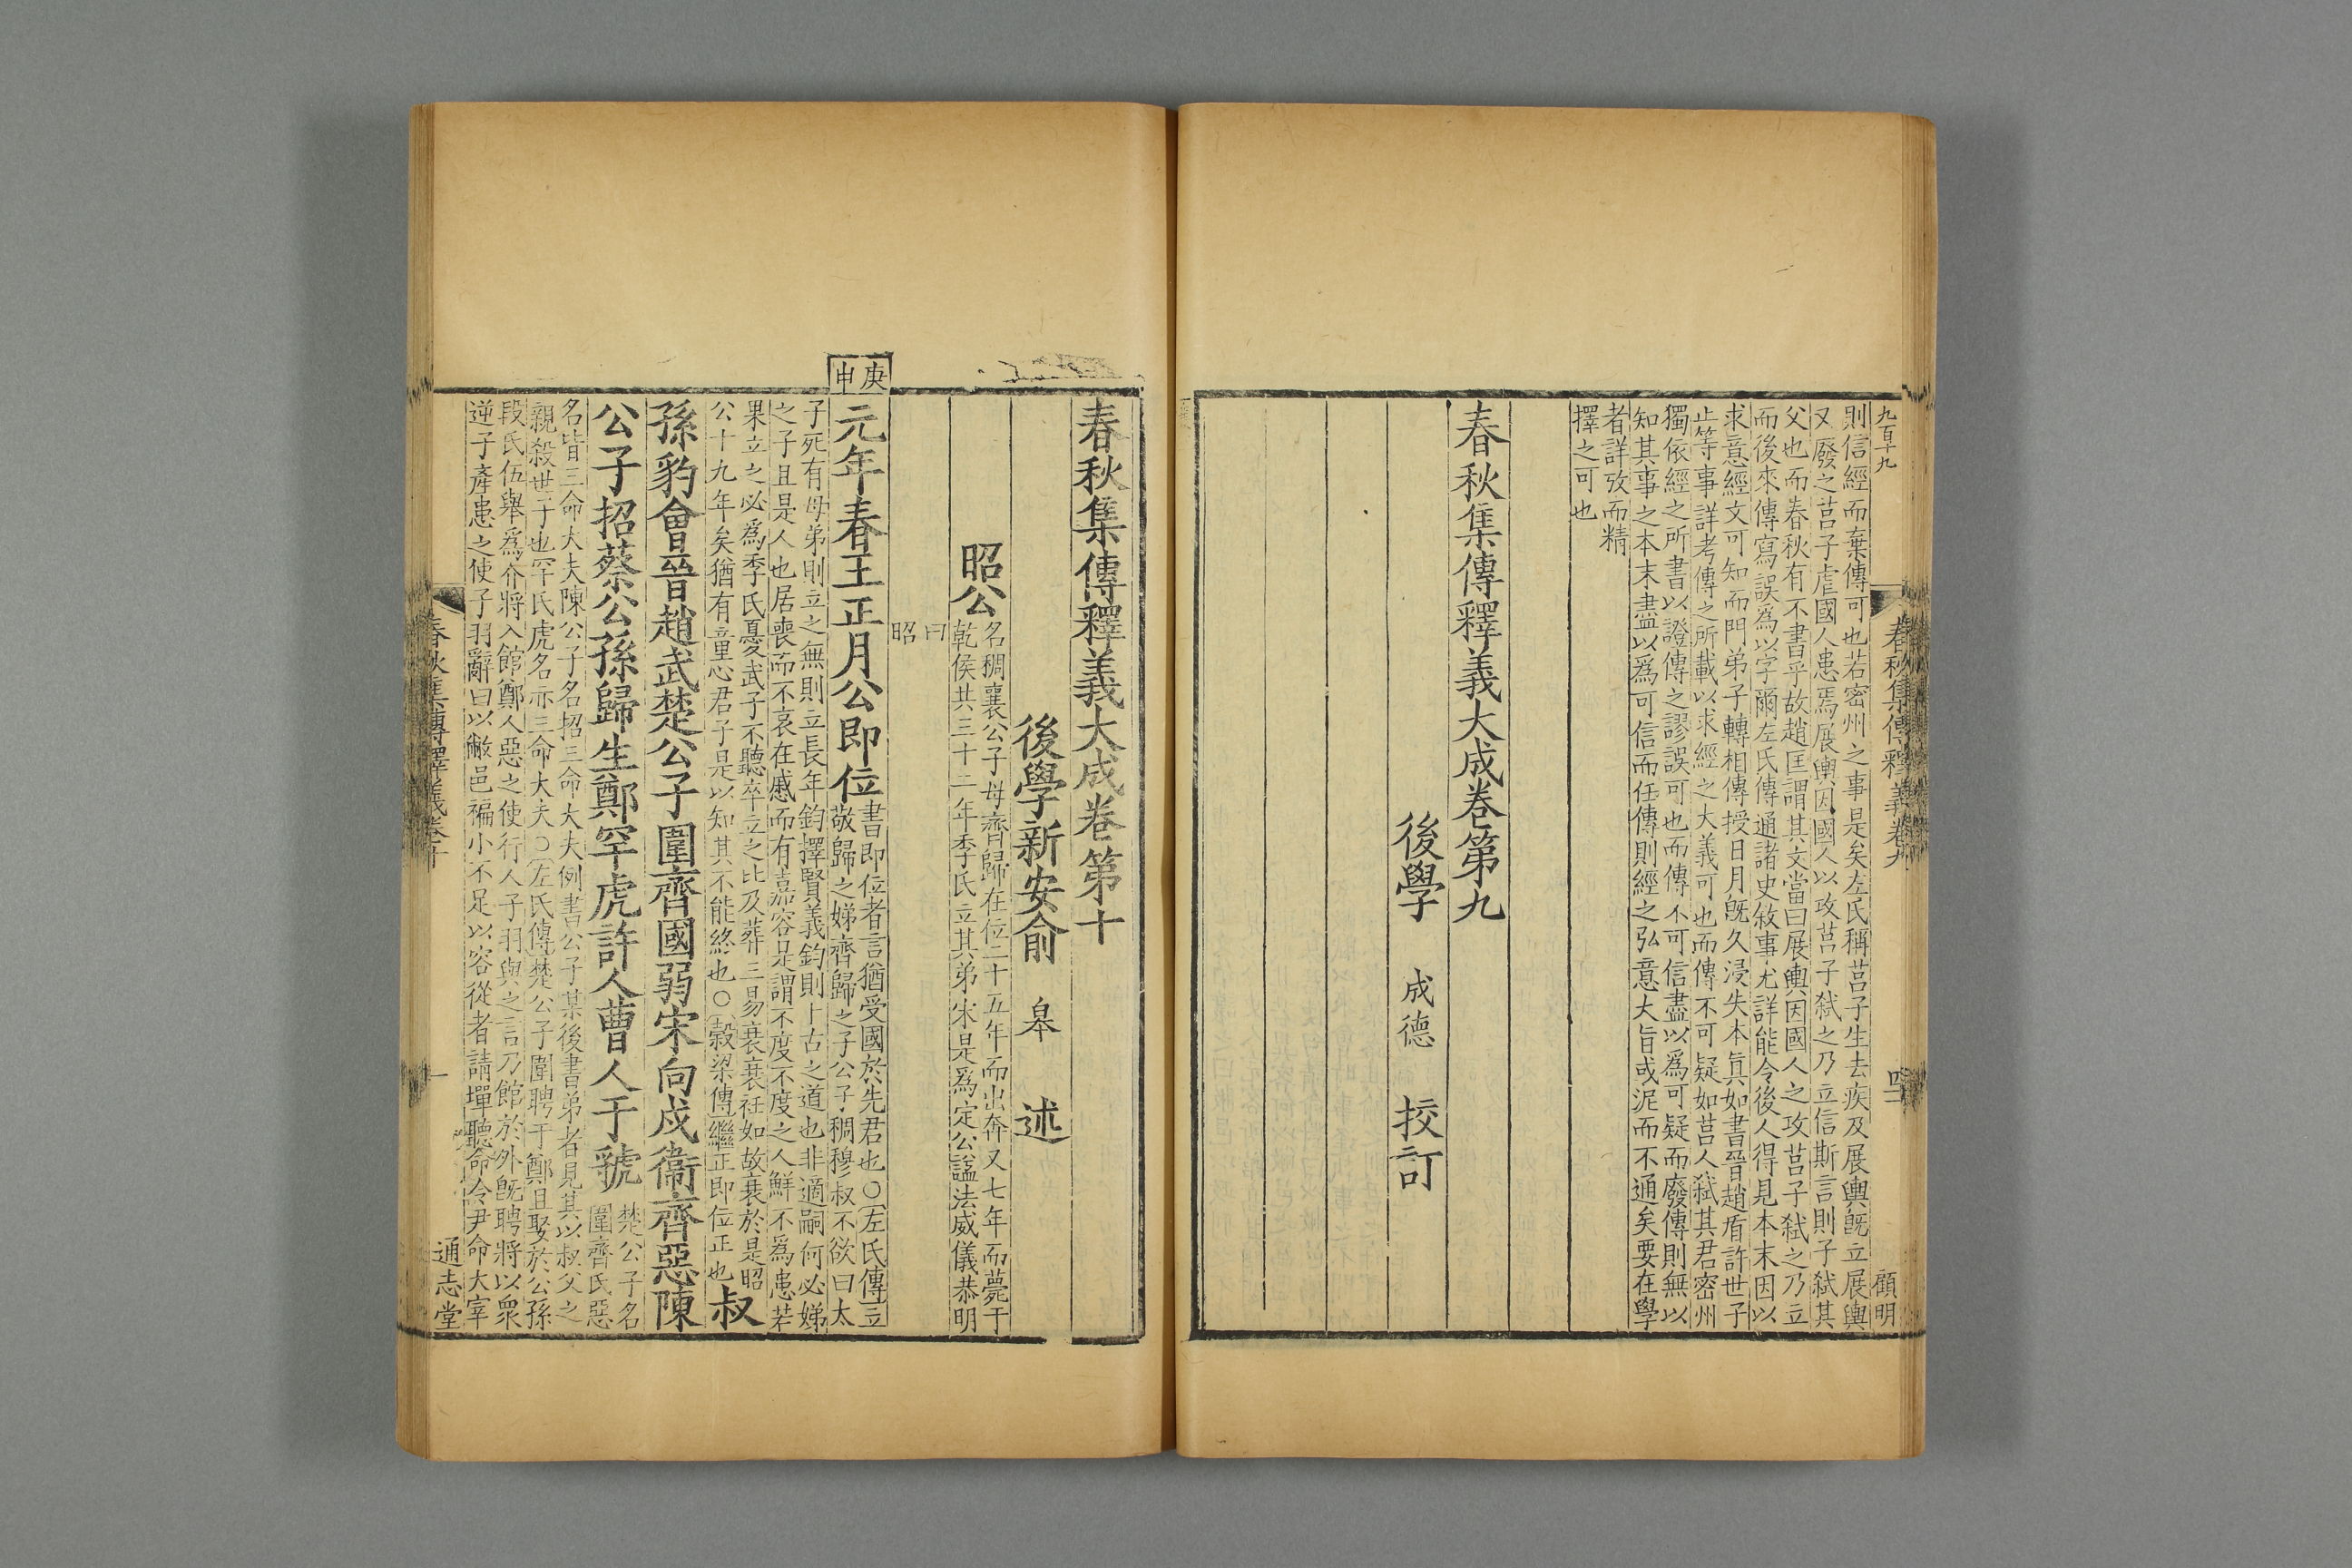 九百十九
春秋集傳釋義卷九
四二
顧明
則信經而棄傳可也若密州之事是矣左氏稱莒子生去疾及展輿旣立展輿
又廢之莒子虐國人患焉展輿因國人以攻莒子弑之乃立信斯言則子弑其
父也而春秋有不書乎故趙匡謂其文當曰展輿因國人之攻莒子弑之乃立
而後來傳寫誤爲以字爾左氏傳通諸史敘事尤詳能令後人得見本末因以
求意經文可知而門弟子轉相傳授日月旣久浸失本眞如書晉趙盾許世子
止等事詳考傳之所載以求經之大義可也而傳不可疑如莒人弑其君密州
獨依經之所書以證傳之謬誤可也而傳不可信盡以爲可疑而廢傳則無以
知其事之本末盡以爲可信而任傳則經之弘意大旨或泥而不通矣要在學
者詳攷而精
擇之可也
春秋集傳釋義大成卷第九
後學 成德 挍訂
春秋集傳釋義大成卷第十
後學新安俞 皋 述
昭公
名稠襄公子母齊歸在位二十五年而出奔又七年而薨于
乾侯共三十二年季氏立其弟宋是爲定公諡法威儀恭明
曰
昭
庚申
元年春王正月公即位
書即位者言猶受國於先君也○左氏傳立
敬歸之娣齊歸之子公子稠穆叔不欲曰太
子死有母弟則立之無則立長年鈞擇賢義鈞則卜古之道也非適嗣何必娣
之子且是人也居喪而不哀在慼而有嘉容是謂不度不度之人鮮不爲患若
果立之必爲季氏憂武子不聽卒立之比及葬三易衰衰衽如故衰於是昭
公十九年矣猶有童心君子是以知其不能終也○穀梁傳繼正即位正也
叔
孫豹會晉趙武楚公子圍齊國弱宋向戌衞齊惡陳
公子招蔡公孫歸生鄭罕虎許人曹人于虢
楚公子名
圍齊氏惡
名皆三命大夫陳公子名招三命大夫例書公子某後書弟者見其以叔父之
親殺世子也罕氏虎名亦三命大夫○左氏傳楚公子圍聘于鄭且娶於公孫
段氏伍舉爲介將入館鄭人惡之使行人子羽與之言乃館於外旣聘將以衆
逆子產患之使子羽辭曰以敝邑褊小不足以容從者請墠聽命令尹命大宰
春秋集傳釋義卷十
一
通志堂